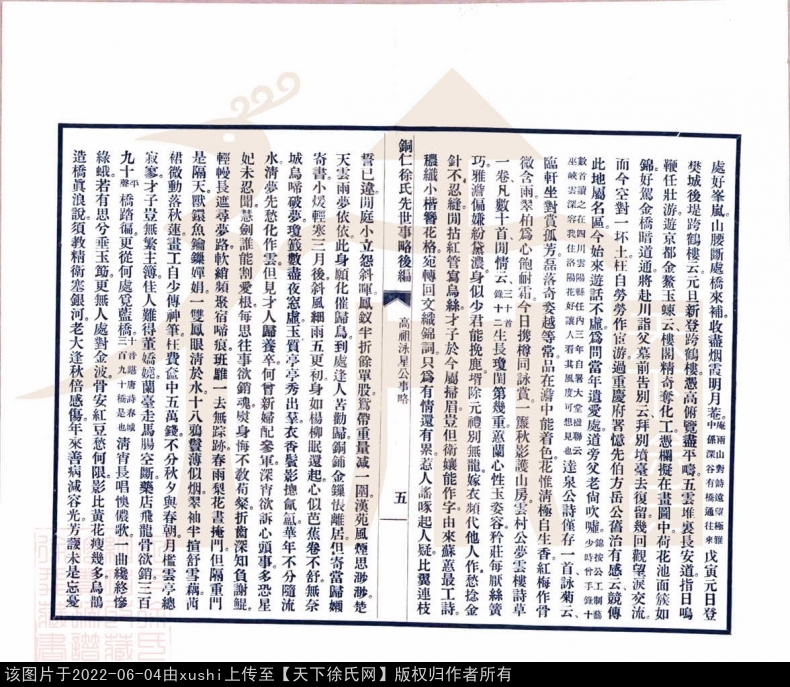 處好峯嵐山腰斷處橋來補收盡烟霞明月菴庵兩山對峙遠望極雅中係深谷有橋通往來戊寅元日登
樊城後堤跨鶴樓云元旦新登跨鶴樓憑高俯覽盡平疇五雲堆裏長安道指日鳴
鞭任壯游遊京都金鰲玉蝀云樓閣精奇奪化工憑欄擬在畫圖中荷花池面簇如
錦好駕金橋暗道通將赴川詣父墓前告別云拜別墳臺去復留幾回觀望淚交流
而今空對一坏土枉自勞勞作宦游過重慶府署憶先伯方岳公舊治有感云競傳
此地屬名區今始來遊話不虛爲問當年遺愛處道旁父老尚吹噓錦按公工制藝少時曾手錄十
數首讀之在四川雲陽縣任內三年自署大堂楹聯云巫峽雲深容我住洛陽花好讓人看其風度可想見也逹泉公詩僅存一首詠菊云
臨軒坐對賞孤芳磊落奇姿越等常品在澹中能着色花惟清極自生香紅梅作骨
微含雨翠柏爲心飽耐霜今日携樽同詠賞一籬秋影護山房雲村公夢雲樓詩草
一卷凡數十首閒情云三十首錄十二生長瓊閨第幾重蕙蘭心性玉姿容衿莊每厭絲簧
巧雅澹偏嫌粉黛濃身似少君能挽鹿壻除元禮別無龍嫁衣頻代他人作愁捻金
針不忍縫閒拈紅管寫烏絲才子於今屬掃眉豈但衛孃能作字由來蘇蕙最工詩
穠纖小楷簪花格宛轉回文織錦詞只爲有情還有累惹人謠諑起人疑比翼連枝
銅仁徐氏先世事略後編
高祖泳星公事略
五
誓已違閒庭小立怨斜暉鳳釵半折餘單股鴛帶重量減一圍漢苑風煙思渺渺楚
天雲雨夢依依此身願化催歸鳥到處逢人苦勸歸銅鋪金鏁悵離居但寄當歸嬾
寄書小煖輕寒三月後斜風細雨五更初身如楊柳眠還起心似芭蕉卷不舒無奈
城烏啼破夢瓊籤數盡夜窓虛玉質亭亭秀出羣衣香鬢影擔氤氳華年不分隨流
水清夢先愁化作雲但見才人歸養卒何曾新婦配參軍深宵欲訴心頭事多恐星
妃未忍聞慧劍誰能割愛根每思往事欲銷魂熨身悔不敎荀粲折齒深知負謝鯤
輕幔長遮尋夢路軟綃頻聚宿啼痕班騅一去無踪跡春雨梨花晝掩門但隔重門
是隔天獸鐶魚鑰鏁嬋娟一雙鳳眼清於水十八鴉鬟薄似烟翠袖半揎舒雪藕茜
裙微動落秋蓮畫工自少傳神筆枉費奩中五萬錢不分秋夕與春朝月檻雲亭總
寂寥才子豈無繁主簿佳人難得董嬌嬈蘭臺走馬腸空斷藥店飛龍骨欲銷三百
九十平聲橋踏徧更從何處覓藍橋十首謂唐詩春城三百九十橋是也清宵長唱懊儂歌一曲纔終慘
綠蛾若有思兮垂玉筯更無人處對金波骨安紅豆愁何限影比黃花瘦幾多烏鵲
造橋眞浪說須教精衛塞銀河老大逢秋倍感傷年來善病減容光方諼未是忘憂
該图片于2022-06-04由xushi上传至【天下徐氏网】版权归作者所有